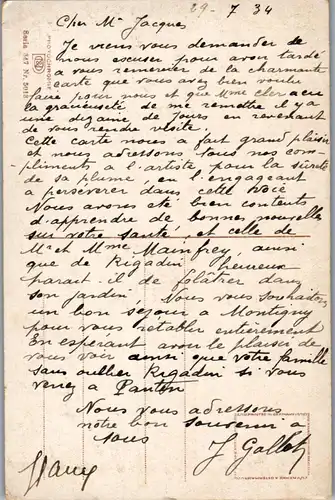 29 - 7 34
Cher Mr Jacques
Je viens vous demander de
nous excuser pour avoir tardé
a vous remercier de la charmante
carte que vous avez bien voulu
faire pour nous et que Mme Clerc a eu
la gracieuseté de me remettre il y a
une dizaine de Jours en revenant
de vous rendre visite.
Cette carte nous a fait grand plaisir
et nous adressons tous nos com
-pliments à l'artiste pour la sûreté
de sa plume, en l'engageant
a perséverer dans cette voie
Nous avons été bien contents
d'apprendre de bonnes nouvelles
sur votre santé, et celle de
Mr et Mme Mainfrey, ainsi
que de Rigadin heureux
parait-il de folâtrer dans
son jardin, Nous vous souhaitons
un bon séjour a Montigny
pour vous rétablir entièrement
En espérant avoir le plaisir de
vous voir ainsi que votre famille
sans oublier Rigadin si vous
venez a Pantin
Nous vous adressons
notre bon souvenir a
tous
J Gallot
PHOTOCHROMIE
Serie 343 Nr. 5018